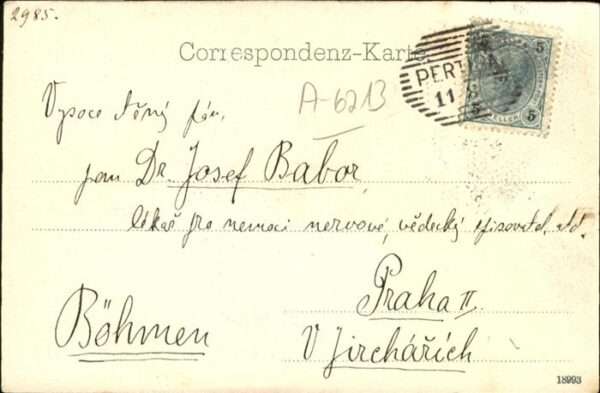 2985.
Correspondenz-Karte
5 5
PERT
11
5
A-6213
Vysoce ctěný pán,
pan Dr. Josef Babor,
lékař pro nemoci nervové, vědecký spisovatel, atd.
Praha II.
Böhmen
V Jirchářích
18993